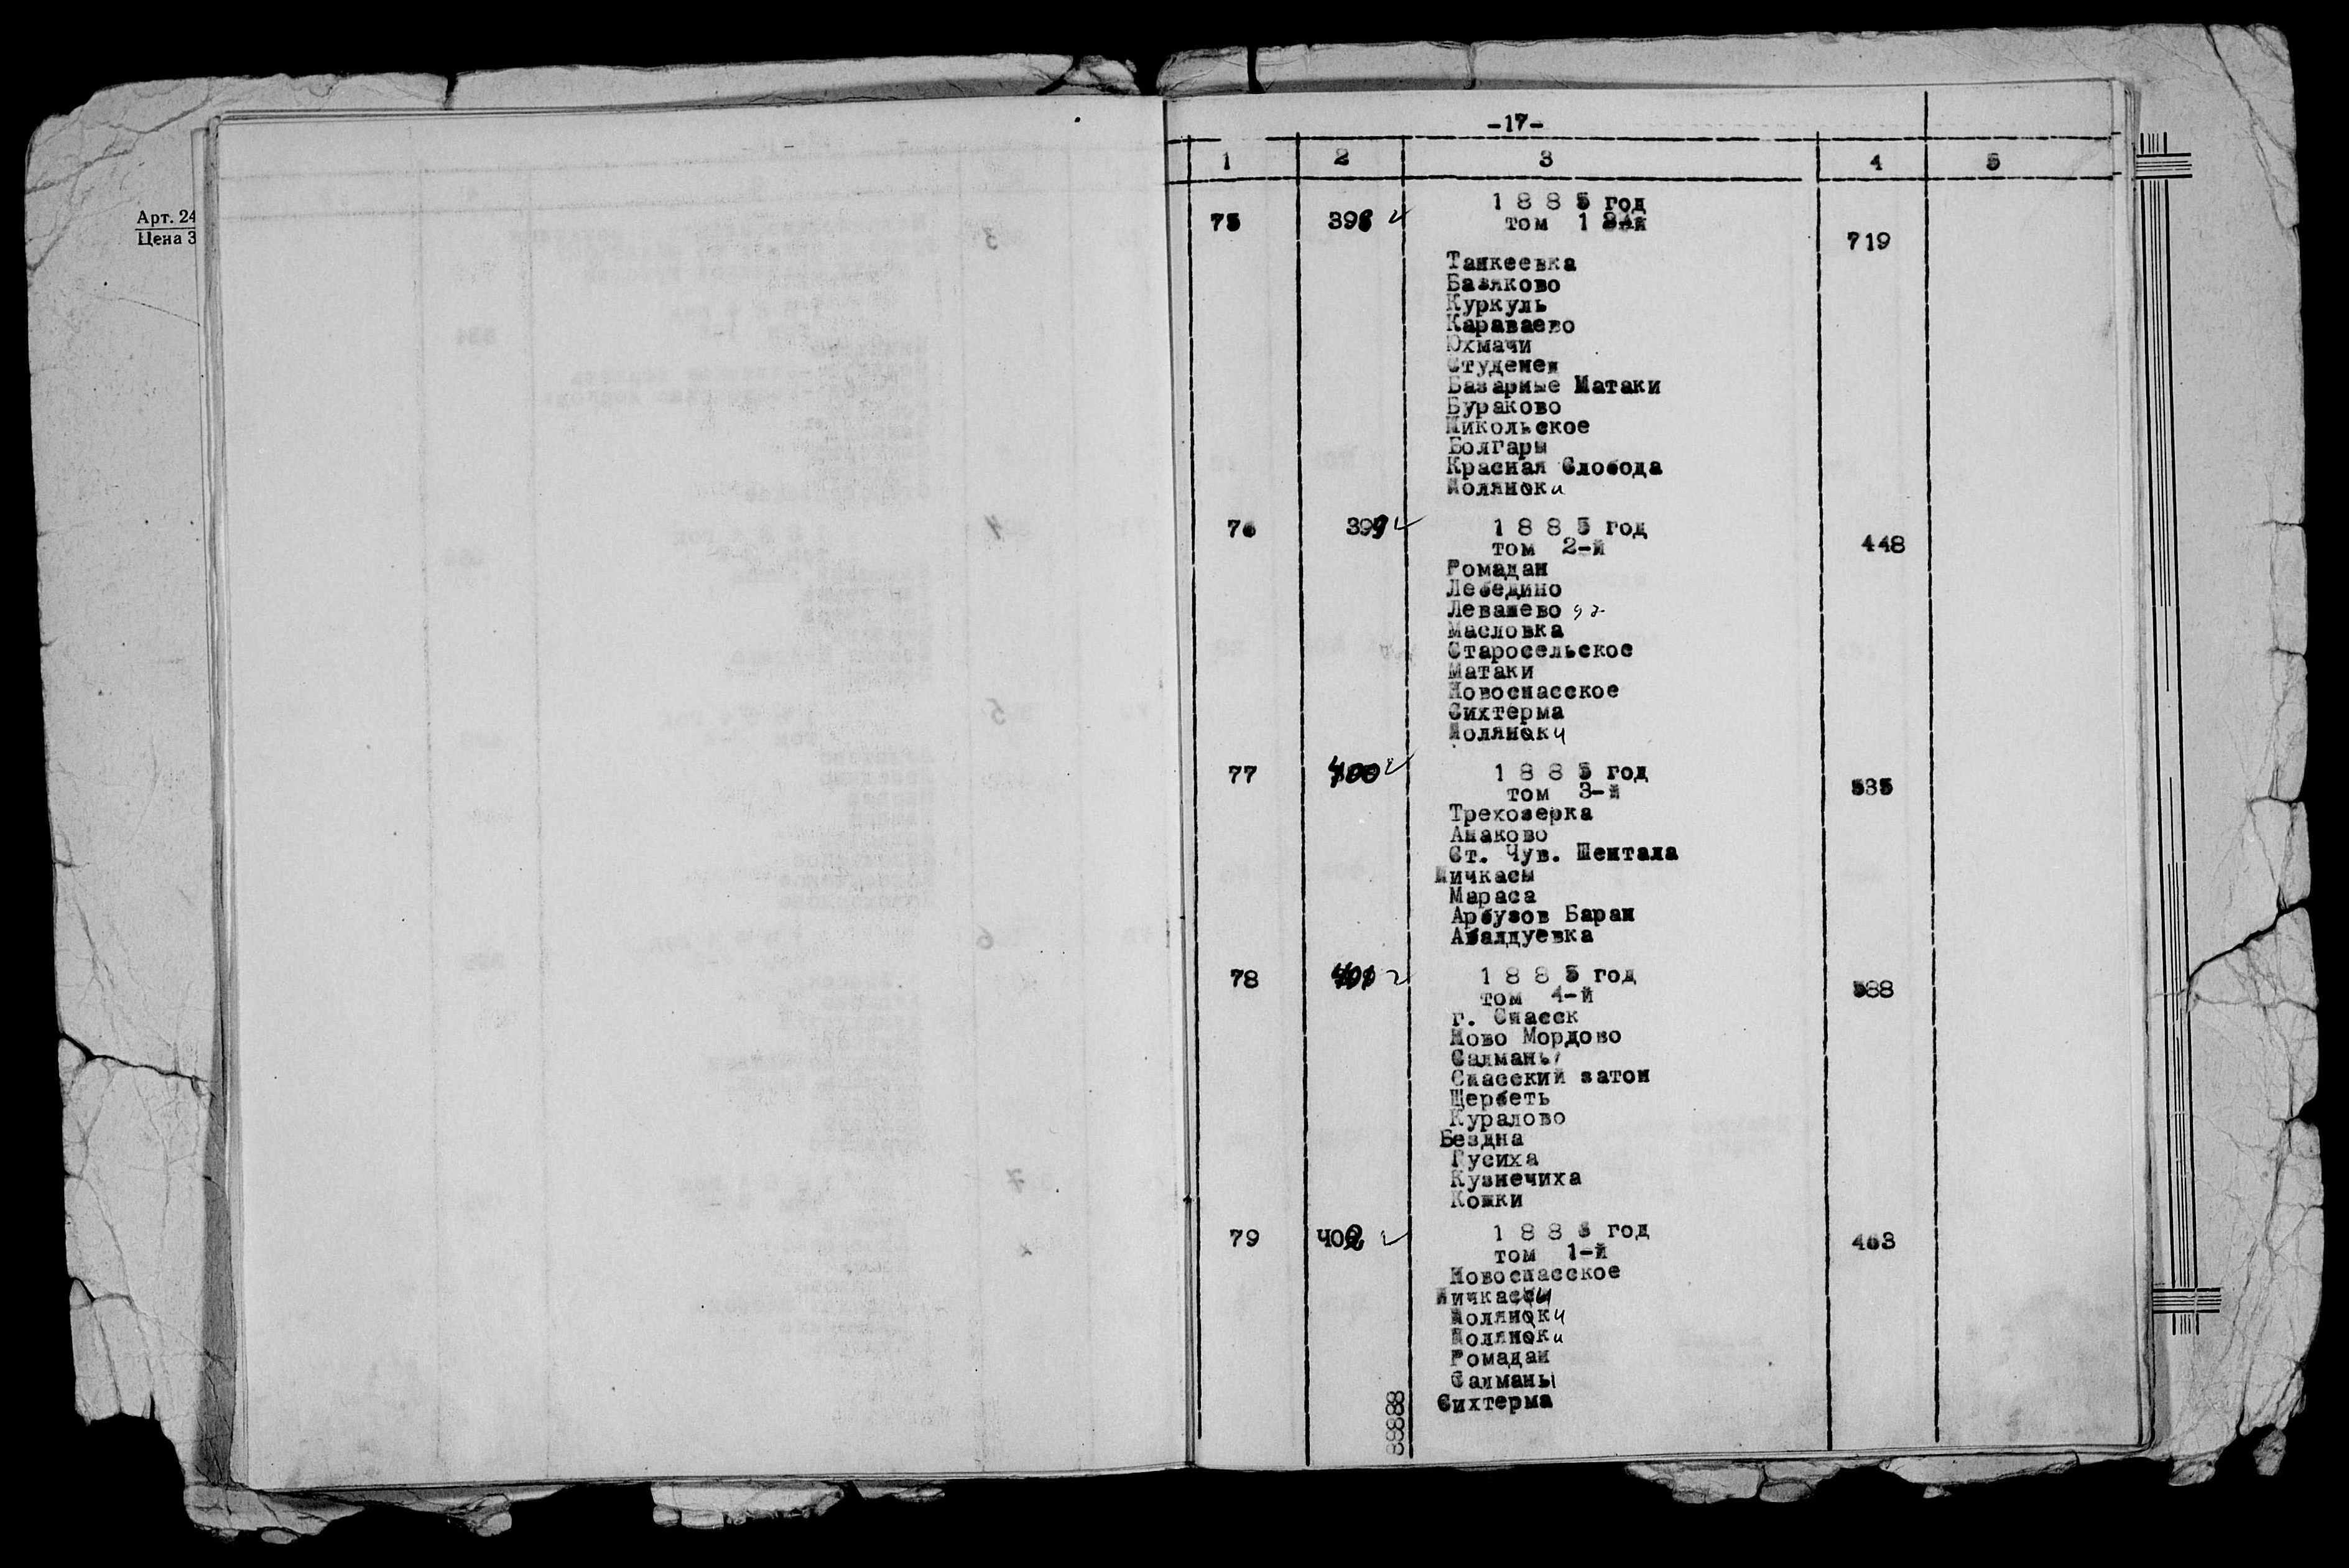 Арт. 24
Цена 3
-17-
1 2 3 4 5
1 8 8 5 год
75 398 том 1
719
Танкеевка
Базяково
Куркуль
Караваево
Юхмачи
Студенец
Базарные Матаки
Бураково
Никольское
Болгары
Красная Слобода
Полянки
76 399 1 8 8 5 год
том 2-й 448
Ромадан
Лебедино
Левашево
Масловка
Старосельское
Матаки
Новоспасское
Сихтерма
Полянки
77 400 1 8 8 5 год
том 3-й 535
Трехозерка
Анаково
Ст. Чув. Шентала
Ничкасы
Мараса
Арбузов Баран
Абалдуевка
78 401 1 8 8 5 год
том 4-й 588
г. Спасск
Ново Мордово
Салманы
Спасский затон
Щербеть
Куралово
Бездна
Гусиха
Кузнечиха
Кошки
79 402 1 8 8 6 год
том 1-й 463
Новоспасское
Полянки
Полянки
Ромадан
Салманы
Сихтерма